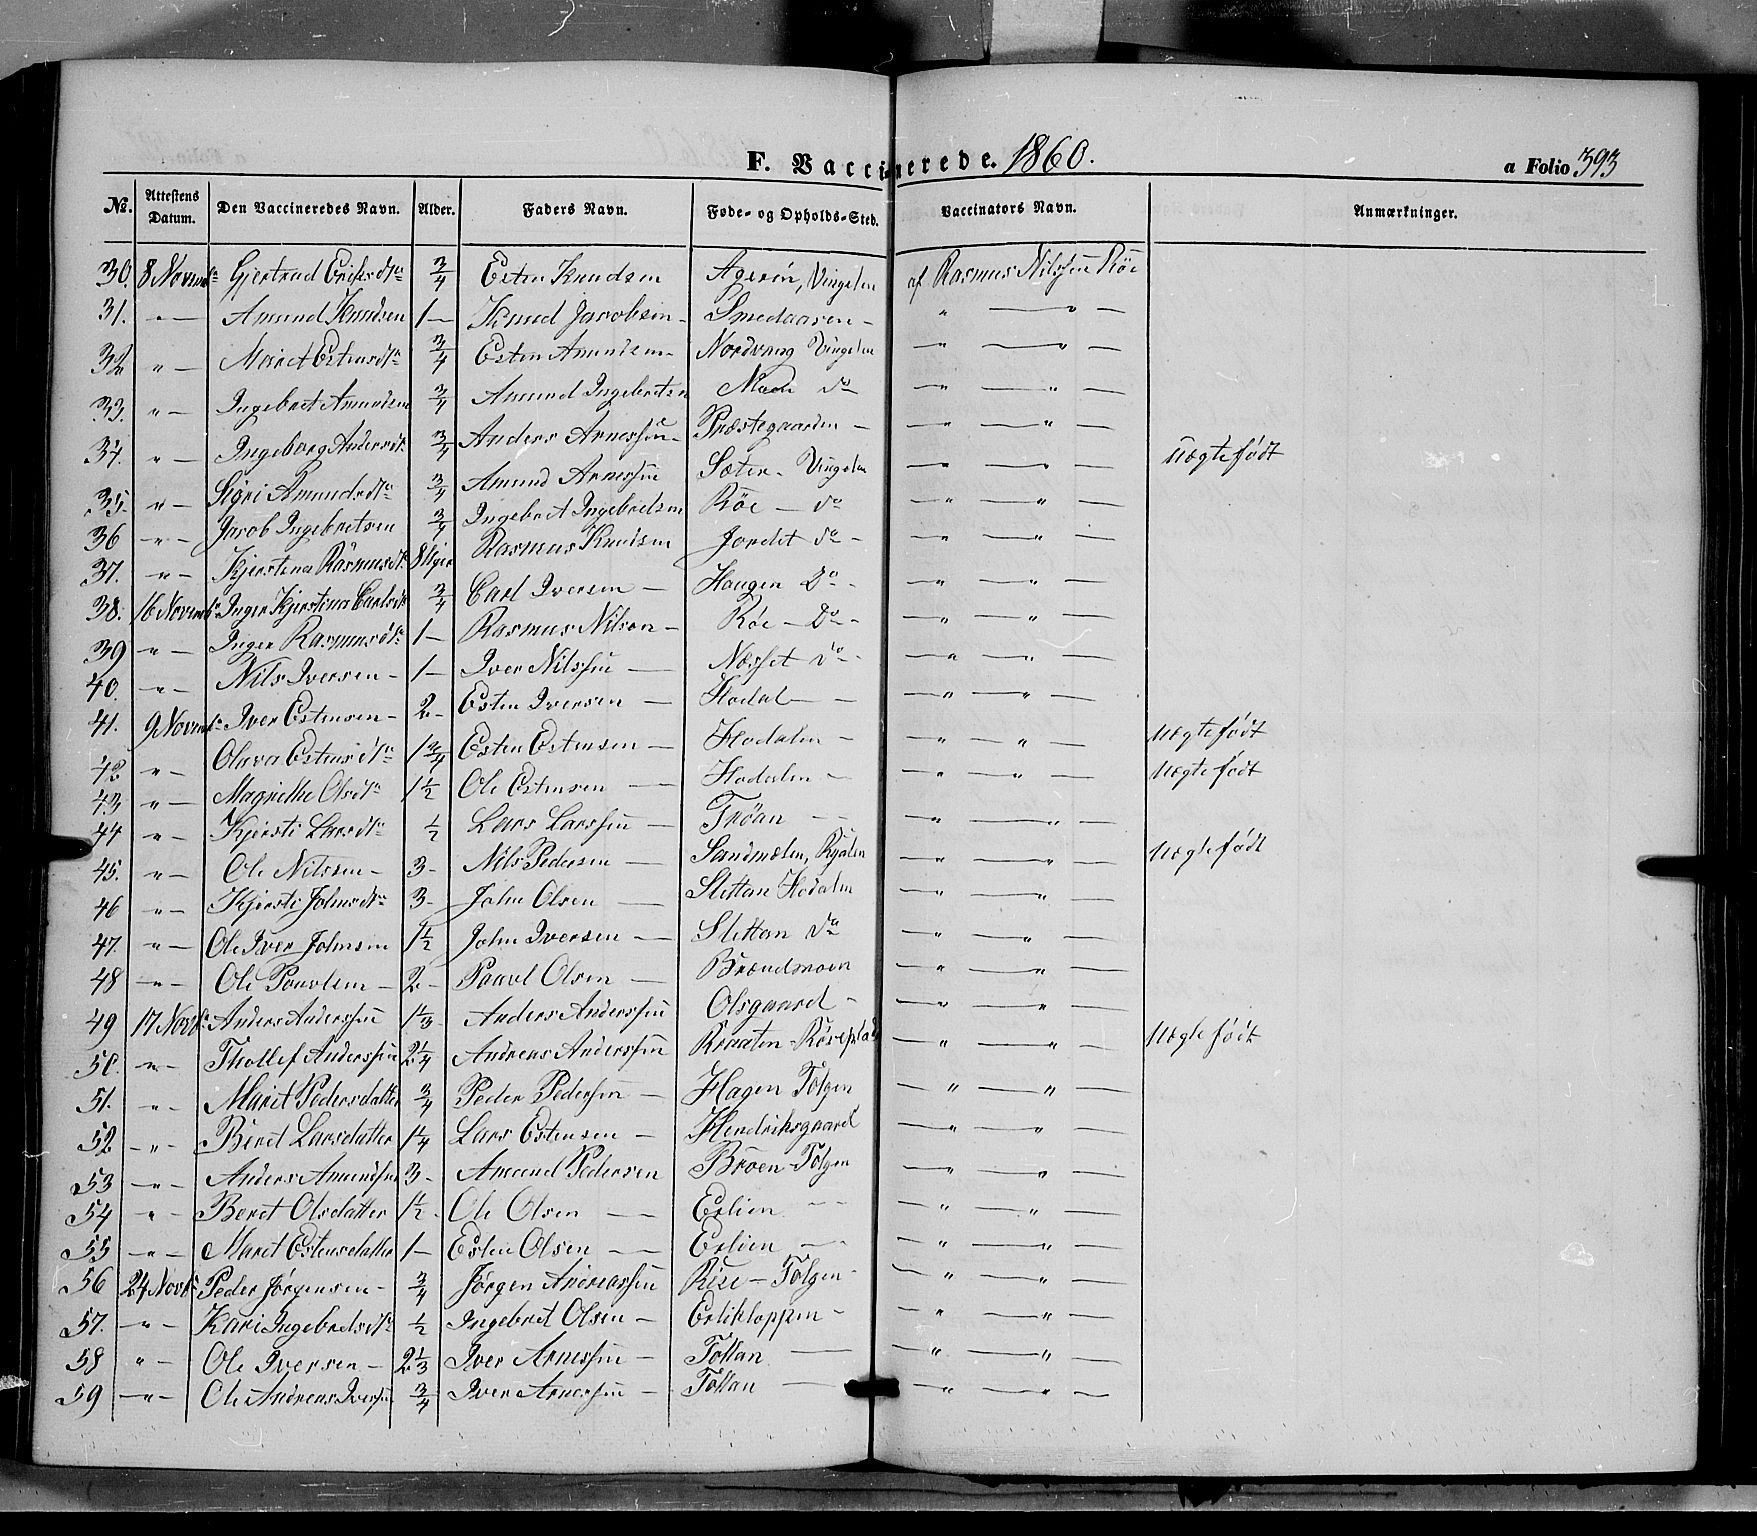 F. Vaccinerede. 1860. a Folio 393
No. Attestens Datum. Den Vaccineredes Navn. Alder. Faders Navn. Føde- og Opholds-Sted. Vaccinators Navn. Anmærkninger.
30. 8 Novemb. Gjertrud Erichsdtr 3/4 Esten Knudsen Vingelen af Rasmus Nilssen Røe
31. " — Amund Knudsen 1 — Knud Jacobsen - Smedaasen - " — " —
32 " — Maret Estensdtr 3/4 Esten Amundsen - Nordvang Vingelen " — " —
33. " — Ingebret Amundsen 3/4 Amund Ingebretsen Moen do — " — " —
34. " — Ingeborg Andersdtr 3/4 Anders Arnessen - Præstegaarden - — " — " — Uægtefødt
35. " — Sigri Amundsdtr 3/4 Amund Arnessen Sæter - Vingelen — " — " —
36 " — Jacob Ingebretsen 3/4 Ingebret Ingebretsen Røe — do — " — " —
37. " — Kjerstina Rasmusdtr 8 Uger Rasmus Knudsen Jordet do - — " — " —
38. 16 Novemb. Inger Kjerstina Carlsdtr 3/4 Carl Iversen — Haugen Do - — " — " —
39 " — Inger Rasmusdtr 1 — Rasmus Nilson — Røe — Do - — " — " —
40. — " — Nils Iversen - 1 — Iver Nilssen — Næsset do - — " — " —
41. 9 Novemb. Iver Estensen - 2 - Esten Iversen — Hodal — — " — " —
42 — " — Olava Estensdtr 1 3/4 Esten Estensen — Hodalen - — " — " — Uægtefødt
43 " — Magrethe Olsdtr 1 1/2 Ole Estensen — Hodalen — — " — " — Uægtefødt
44 " — Kjersti Larsdtr 1/2 Lars Larssen — Trøan — — " — " —
45. " — Ole Nilssen - 3 - Nils Pedersen — Sandmælen, — " — " — Uægtefødt
46 " — Kjersti Johnsdtr 3 - John Olsen — Slettan Hodalen — " — " —
47. " — Ole Iver Johnsen 1 1/2 John Iversen — Slettan do — " — " —
48 — " — Ole Paavelsen - 2 - Paavel Olsen — Brændmoen — " — " —
49 17 Novb. Anders Anderssen 1 1/3 Anders Anderssen Olsgaard - — " — " —
50. — " — Thollef Anderssen 2 1/4 Andreas Anderssen — " — " — Uægtefødt
51. — " — Marit Pedersdatter 3/4 Peder Pederssen — Hagen Tolgen — " — " —
52 — " — Beret Larsdatter 1 1/4 Lars Estensen — Hendriksgaard — " — " —
53 — " — Anders Amundsen 3 - Amund Pedersen Broen - Tolgen — " — " —
54 " — Beret Olsdatter 1 1/2 - Ole Olsen — Erlien — — " — " —
55 — " — Maret Estensdatter 1 — Esten Olsen — Erlien — — " — " —
56 24 Novb. Peder Jörgensen - 3/4 Jörgen Andreassen Riise — Tolgen - — " — " —
57. — " — Kari Ingebretsdtr 1/2 Ingebret Olsen — Erlikloppen — — " — " —
58 " — Ole Iversen — 2 1/3 Iver Arnessen — Tollan — — " — " —
59 — " — Ole Andreas Iverssen 3/4 Iver Arnessen — Tollan — — " — " —